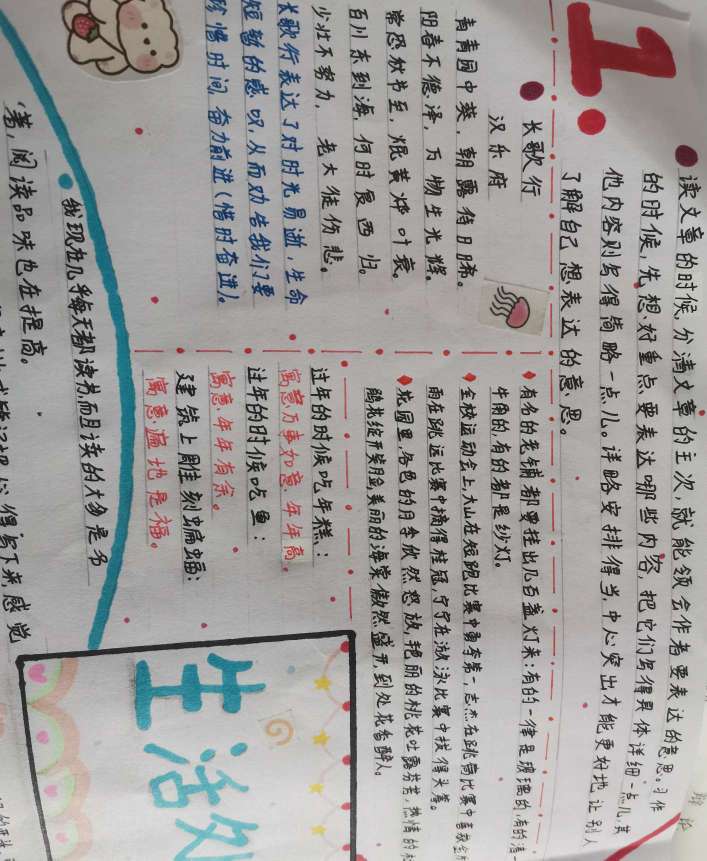 1.
读文章的时候,分清文章的主次,就能领会作者要表达的意思。习作
的时候,先想好重点要表达哪些内容,把它们写得具体详细一点儿,其
他内容则写得简略一点儿。详略安排得当,中心突出才能更好地让别人
了解自己想表达的意思。
长歌行
汉乐府
青青园中葵,朝露待日晞。
阳春布德泽,万物生光辉。
常恐秋节至,焜黄华叶衰。
百川东到海,何时复西归。
少壮不努力,老大徒伤悲。
长歌行表达了对时光易逝,生命
短暂的感叹,从而劝告我们要
珍惜时间,奋力前进(惜时奋进)。
有名的老铺都要挂出几百盏灯来:有的一律是玻璃的,有的清一
牛角的,有的都是纱灯。
全校运动会上,大山在短跑比赛中勇夺第一,志杰在跳高比赛中喜获
雨在跳远比赛中摘得桂冠,宁宁在激泳比赛中拔得头筹。
花园里,各色的月季依然怒放,艳丽的桃花吐露芬芳,热情的
鹃花绽开笑脸,美丽的海棠傲然盛开,到处花香醉人。
过年的时候吃年糕:
寓意万事如意,年年高。
过年的时候吃鱼:
寓意年年有余。
建筑上雕刻蝙蝠:
寓意遍地是福。
我现在几乎每天都读书,而且读的大多是名
著,阅读品味也在提高。
得写下来感觉
生活